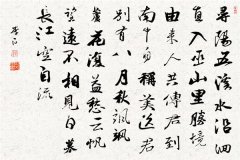 尋陽五溪水沿洄
直入巫山里勝境
由来人共傳君到
南中自稱美送君
別有八月秋颯颯
蘆花復益愁云帆
望遠不相見日暮
長江空自流